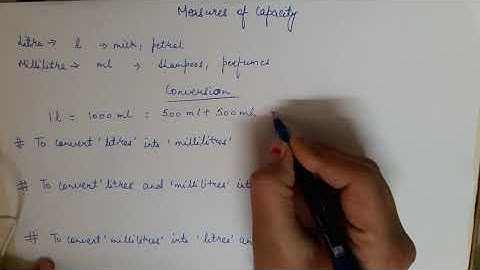 Measures of Capacity
Litre → l → milk, petrol
Millilitre → ml → shampoos, perfumes
Conversion
1 l = 1000 ml = 500 ml + 500 ml
# To convert 'litres' into 'millilitres'
# To convert 'litres and 'millilitres' int
# To convert 'millilitres' into 'litres' an